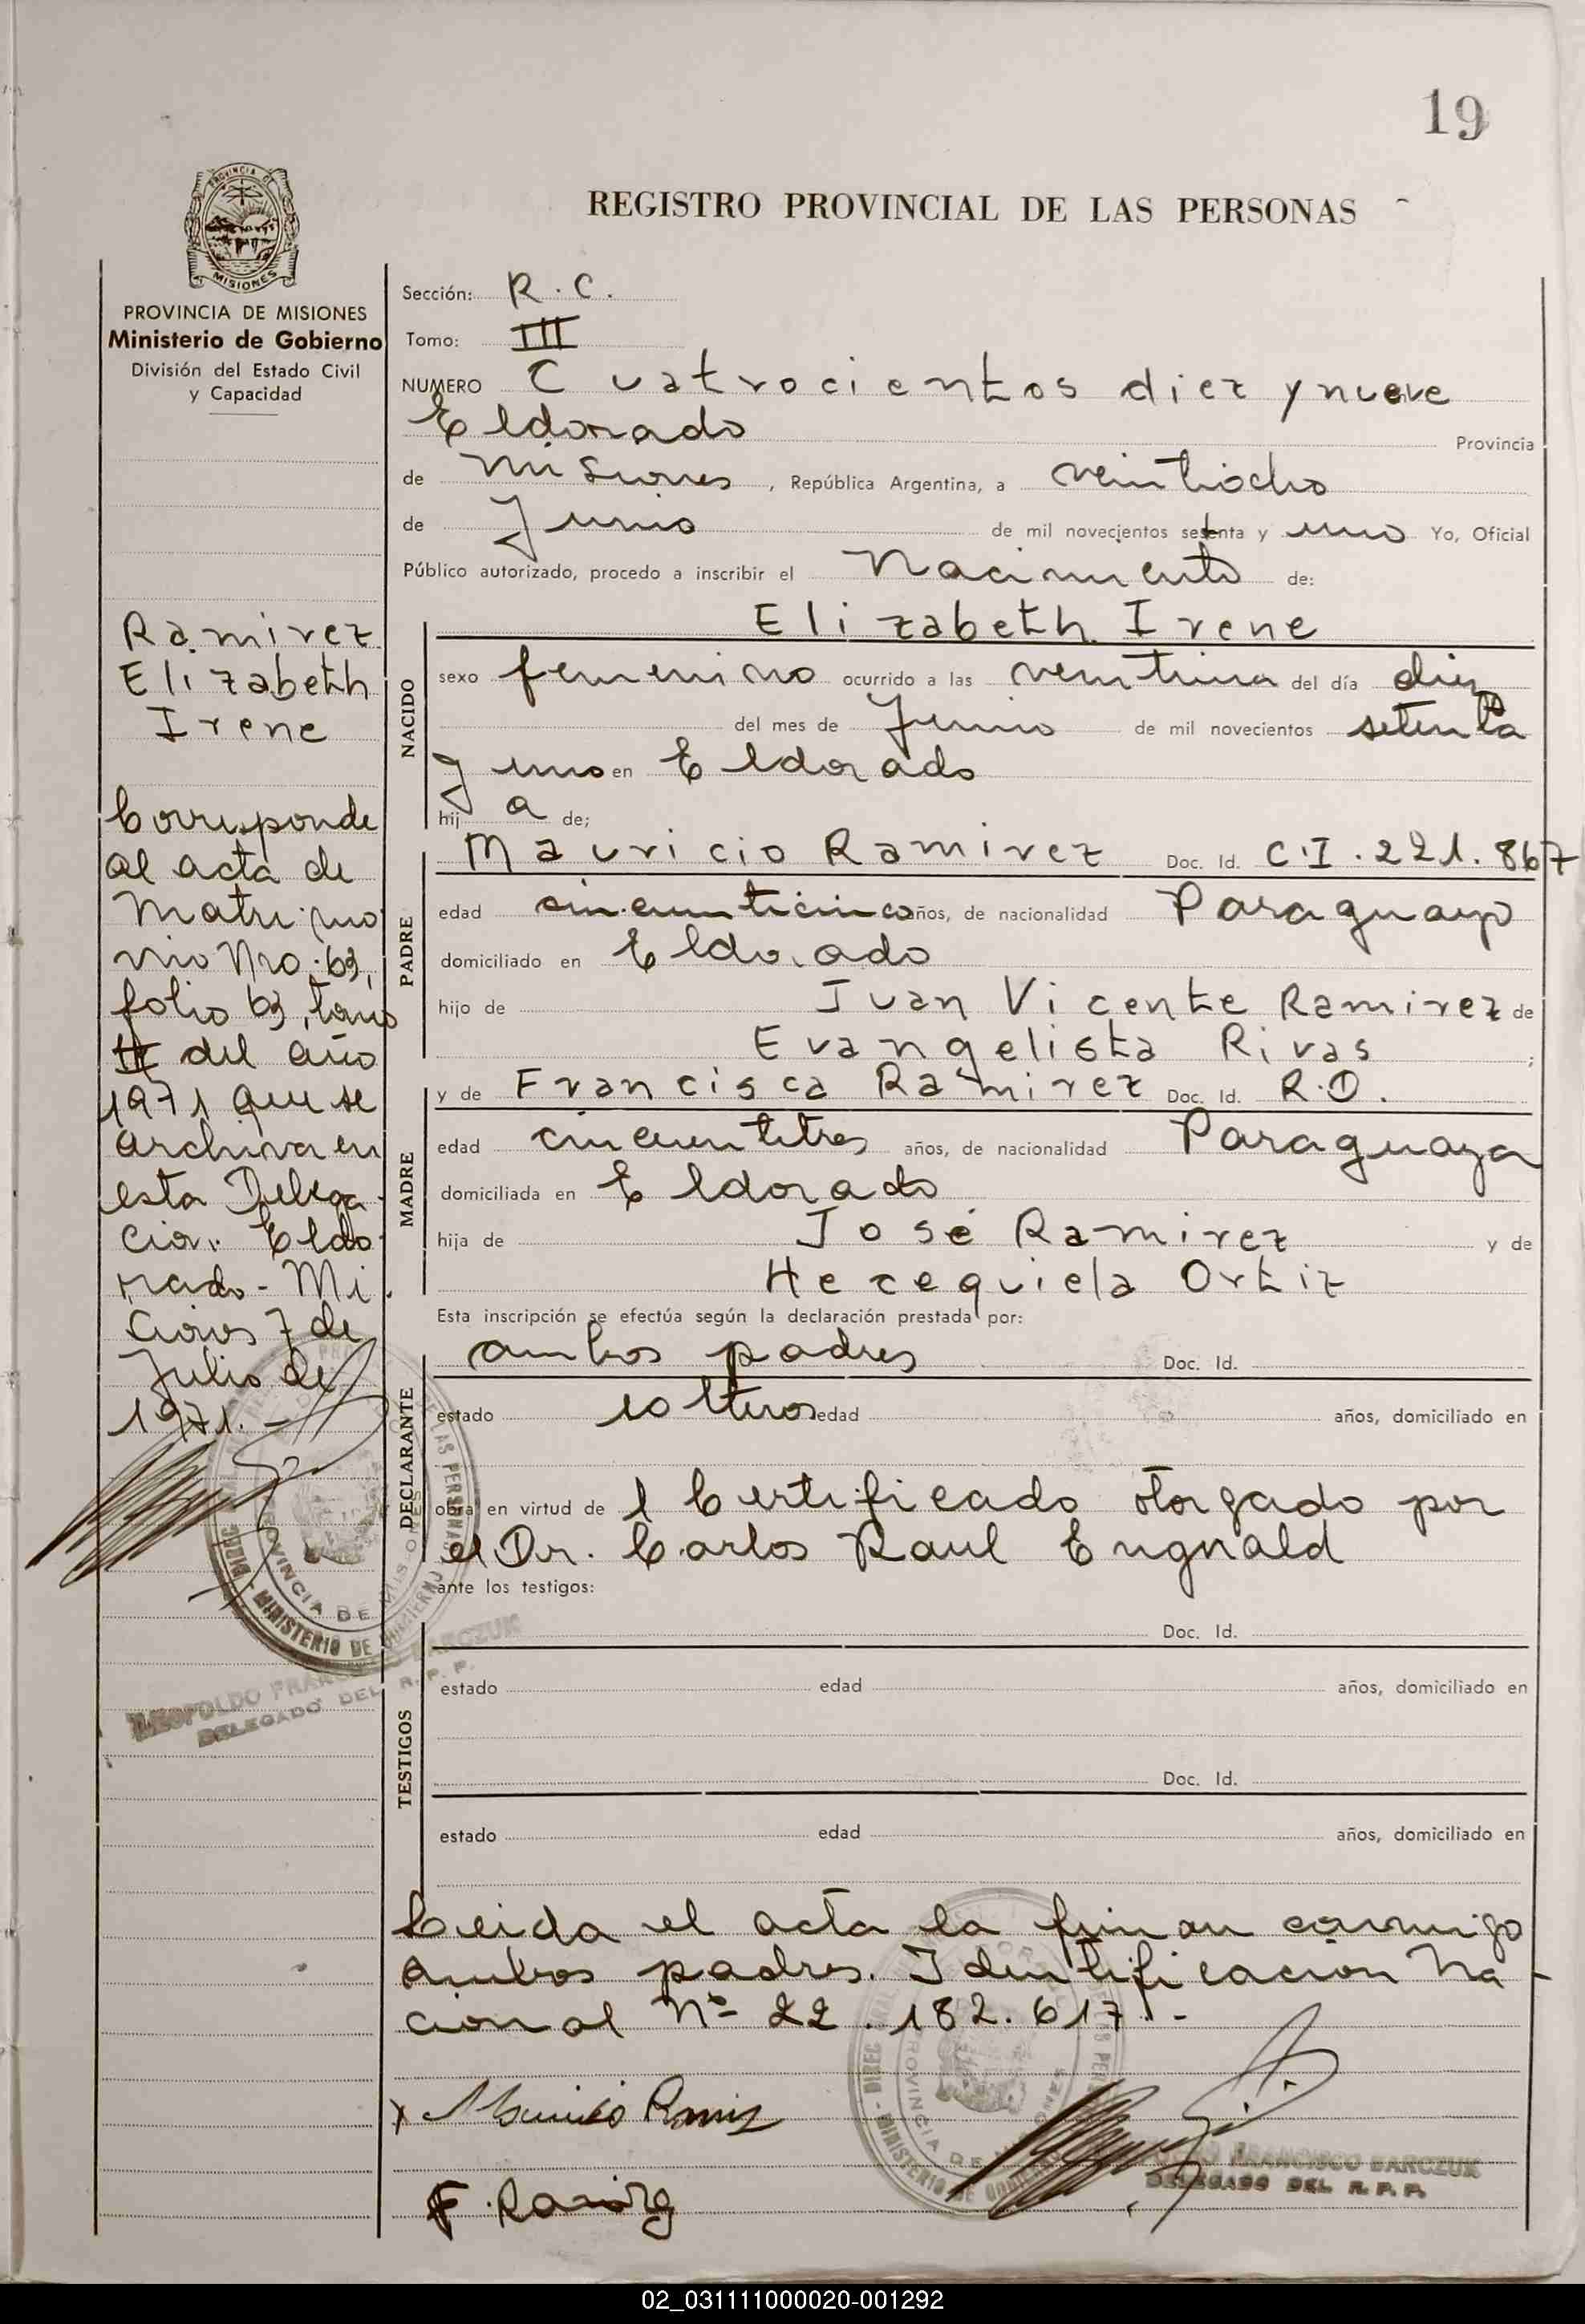 19
REGISTRO PROVINCIAL DE LAS PERSONAS
PROVINCIA DE
MISIONES
PROVINCIA DE MISIONES
Ministerio de Gobierno
División del Estado Civil
y Capacidad
Ramirez
Elizabeth
Irene
Corresponde
al acta de
Matrimo
nio Nro. 63,
folio 63, tomo
II del año
1971 que se
archiva en
esta Delega
cion. Eldo
rado - Mi
ciones 7 de
Julio de
1971.-
Sección: R. C.
Tomo: III
NUMERO Cuatrocientos diez y nueve
Eldorado Provincia
de Misiones, República Argentina, a veintiocho
de Junio de mil novecientos setenta y uno Yo, Oficial
Público autorizado, procedo a inscribir el Nacimiento de:
NACIDO
Elizabeth Irene
sexo femenino ocurrido a las veintiuna del día diez
del mes de Junio de mil novecientos setenta
y uno en Eldorado
hij a de;
PADRE
Mauricio Ramirez Doc. Id. C.I. 221.867
edad cincuenticinco años, de nacionalidad Paraguayo
domiciliado en Eldorado
hijo de Juan Vicente Ramirez de
Evangelista Rivas ;
MADRE
y de Francisca Ramirez Doc. Id. R.O.
edad cincuentitres años, de nacionalidad Paraguaya
domiciliada en Eldorado
hija de José Ramirez y de
Hecequiela Ortiz
Esta inscripción se efectúa según la declaración prestada por:
DECLARANTE
ambos padres Doc. Id.
estado solteros edad años, domiciliado en
obra en virtud de l Certificado otorgado por
el Dr. Carlos Raul Engnald
ante los testigos:
TESTIGOS
Doc. Id.
estado edad años, domiciliado en
Doc. Id.
estado edad años, domiciliado en
Leida el acta la firman conmigo
ambos padres. Identificacion Na-
cional Nº 22.182.617.-
MINISTERIO DE GOBIERNO
PROVINCIA DE MISIONES
LEOPOLDO FRANCISCO BARCZUK
DELEGADO DEL R. P. P.
Mauricio Ramirez
F. Ramirez
MINISTERIO DE GOBIERNO
PROVINCIA DE MISIONES
FRANCISCO BARCZUK
DELEGADO DEL R. P. P.
02_031111000020-001292